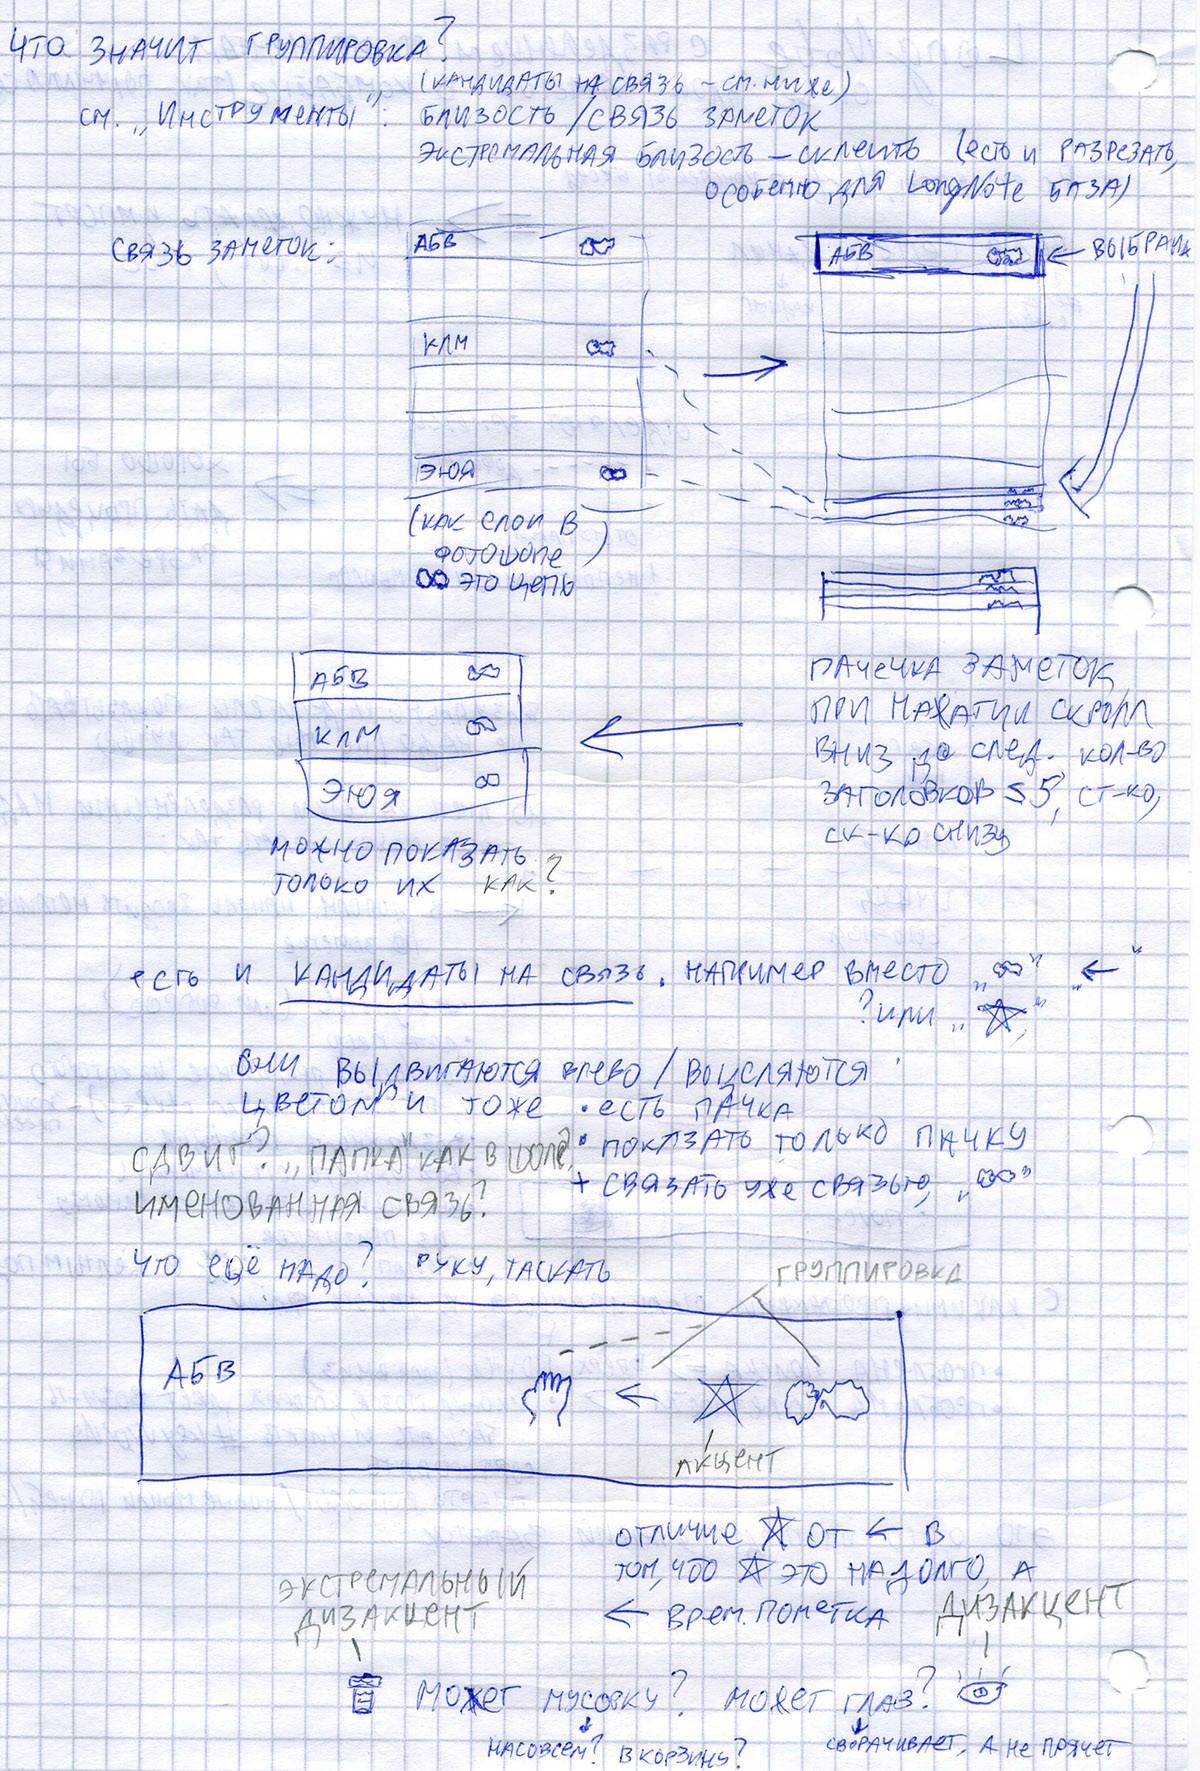 ЧТО ЗНАЧИТ ГРУППИРОВКА?
(КАНДИДАТЫ НА СВЯЗЬ – СМ. НИЖЕ)
СМ. „ИНСТРУМЕНТЫ": БЛИЗОСТЬ / СВЯЗЬ ЗАМЕТОК
ЭКСТРЕМАЛЬНАЯ БЛИЗОСТЬ – СКЛЕИТЬ (ЕСТЬ И РАЗРЕЗАТЬ,
ОСОБЕННО ДЛЯ LongNote БАЗА)
СВЯЗЬ ЗАМЕТОК:
АБВ
АБВ
← ВЫБРАНА
КЛМ
ЭЮЯ
(КАК СЛОИ В
ФОТОШОПЕ)
ЭТО ЦЕПЬ
АБВ
КЛМ
ЭЮЯ
ПАЧЕЧКА ЗАМЕТОК,
ПРИ НАЖАТИИ СКРОЛЛ
ВНИЗ ДО СЛЕД. КОЛ-ВО
ЗАГОЛОВКОВ ≤ 5, СТ-КО,
СК-КО СНИЗУ
МОЖНО ПОКАЗАТЬ
ТОЛЬКО ИХ КАК?
ЕСТЬ И КАНДИДАТЫ НА СВЯЗЬ. НАПРИМЕР ВМЕСТО „ " „←"
? ИЛИ „☆"
ОНИ ВЫДВИГАЮТСЯ ВЛЕВО / ВЫДЕЛЯЮТСЯ
ЦВЕТОМ И ТОЖЕ • ЕСТЬ ПАЧКА
СДВИГ? „ПАПКА" КАК В ШОПЕ? • ПОКАЗАТЬ ТОЛЬКО ПАЧКУ
ИМЕНОВАННАЯ СВЯЗЬ? + СВЯЗАТЬ УЖЕ СВЯЗЬЮ „ "
ЧТО ЕЩЁ НАДО? РУКУ, ТАСКАТЬ
ГРУППИРОВКА
АБВ
←
АКЦЕНТ
ОТЛИЧИЕ ☆ ОТ ← В
ТОМ, ЧТО ☆ ЭТО НАДОЛГО, А
← ВРЕМ. ПОМЕТКА
ЭКСТРЕМАЛЬНЫЙ
ДИЗАКЦЕНТ
ДИЗАКЦЕНТ
МОЖЕТ МУСОРКУ? МОЖЕТ ГЛАЗ?
НАСОВСЕМ? В КОРЗИНУ?
СВОРАЧИВАЕТ, А НЕ ПРЯЧЕТ